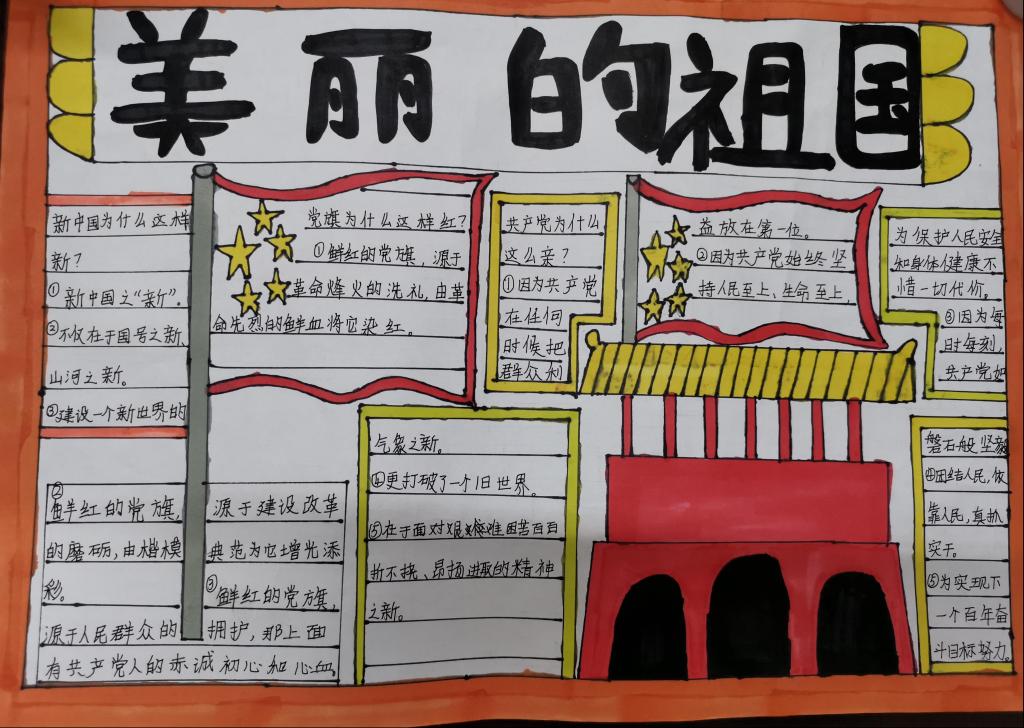 美丽的祖国
新中国为什么这样
新？
①新中国之“新”。
②不仅在于国号之新、
山河之新。
③建设一个新世界的
党旗为什么这样红？
①鲜红的党旗，源于
革命烽火的洗礼，由革
命先烈的鲜血将它染红。
②鲜红的党旗， 源于建设改革
的磨砺，由楷模 典范为它增光添
彩。 ③鲜红的党旗，
源于人民群众的 拥护，那上面
有共产党人的赤诚初心和心血。
气象之新。
④更打破了一个旧世界。
⑤在于面对艰难困苦百
折不挠、昂扬进取的精神
之新。
共产党为什么
这么亲？
①因为共产党
在任何
时候把
群众利
益放在第一位。
②因为共产党始终坚
持人民至上、生命至上
为保护人民安全
和身体健康不
惜一切代价。
③因为每
时每刻，
共产党如
磐石般坚毅
④团结人民，依
靠人民，真抓
实干。
⑤为实现下
一个百年奋
斗目标努力。